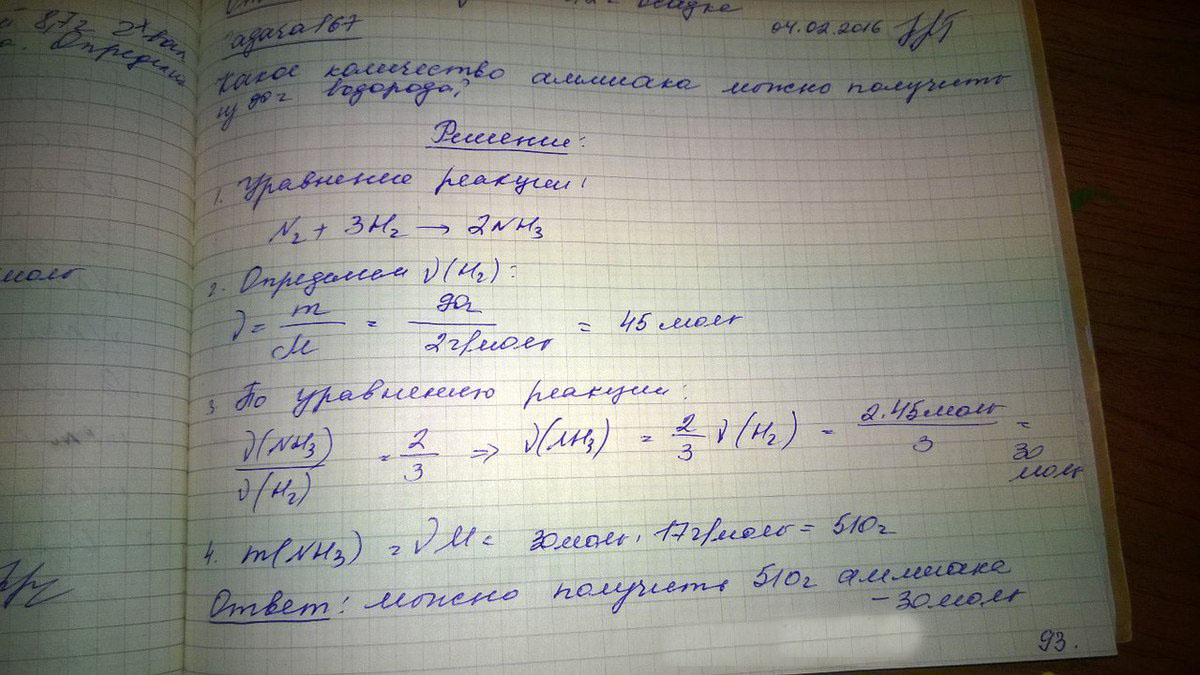 8,7г 2х вал
а. Определи
моль
осадке
Задача 167
04.02.2016
Какое количество аммиака можно получить
из 90г водорода?
Решение:
1. Уравнение реакции:
N₂ + 3H₂ → 2NH₃
2. Определяем ν(H₂):
ν = m/M = 90г/2г/моль = 45 моль
3. По уравнению реакции:
ν(NH₃)/ν(H₂) = 2/3 ⇒ ν(NH₃) = 2/3 ν(H₂) = 2·45моль/3 = 30 моль
4. m(NH₃) = νM = 30моль · 17г/моль = 510г
Ответ: можно получить 510г аммиака
- 30моль
93.